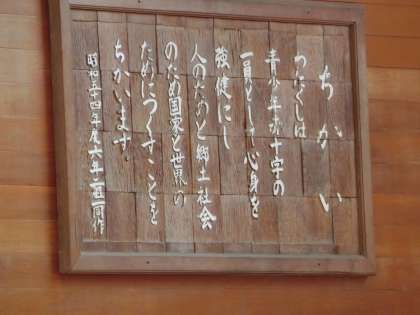 ちかい
わたくしは
青少年赤十字の
一員として心身を
強健にし
人のためと郷土社会
のため国家と世界の
ためにつくすことを
ちかいます
昭和五十四年度六年一同作